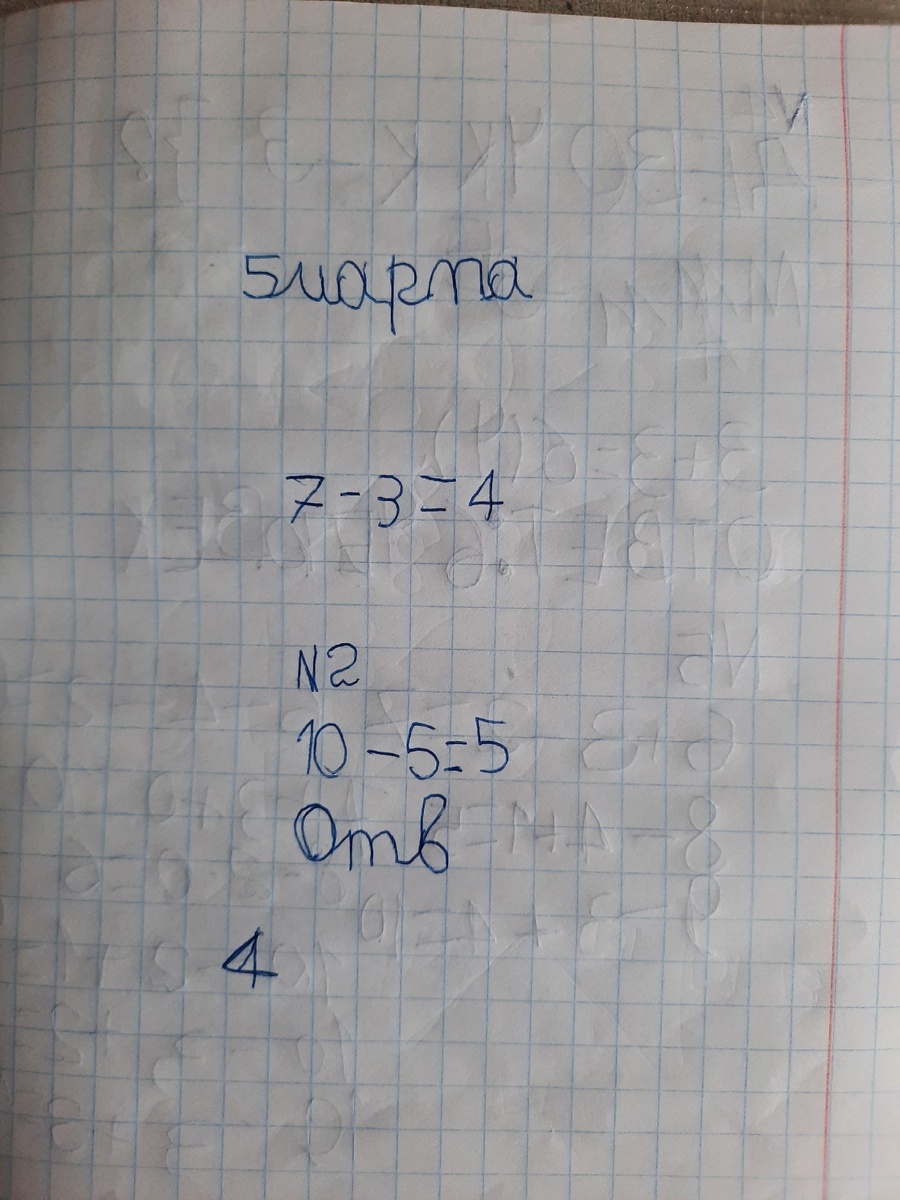 5иарта
7-3=4
N2
10-5=5
Отв
4